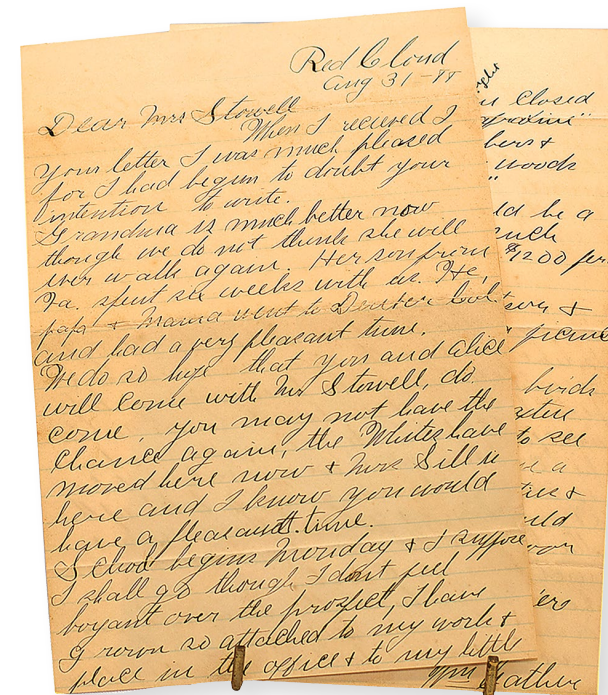 Red Cloud
Aug 31-88
Dear Mrs Stowell
When I recieved
your letter I was much pleased
for I had begun to doubt your
intention to write.
Grandma is much better now
though we do not think she will
ever walk again. Her son from
Va. spent six weeks with us. He,
papa & Mama went to Denver Col.
and had a very pleasant time.
We do so hope that you and Alice
will come with Mr Stowell, do
come, you may not have the
chance again, the Whites have
moved here now & Mrs Sill is
here and I know you would
have a pleasant time.
School begins Monday & I suppose
I shall go though I dont feel
boyant over the prospect, I have
grown so attached to my work &
place in the office & to my little
closed
bers &
woods
ld be a
$1200 per
&
picnic
birds
to see
a
&
uld
Wm Cather